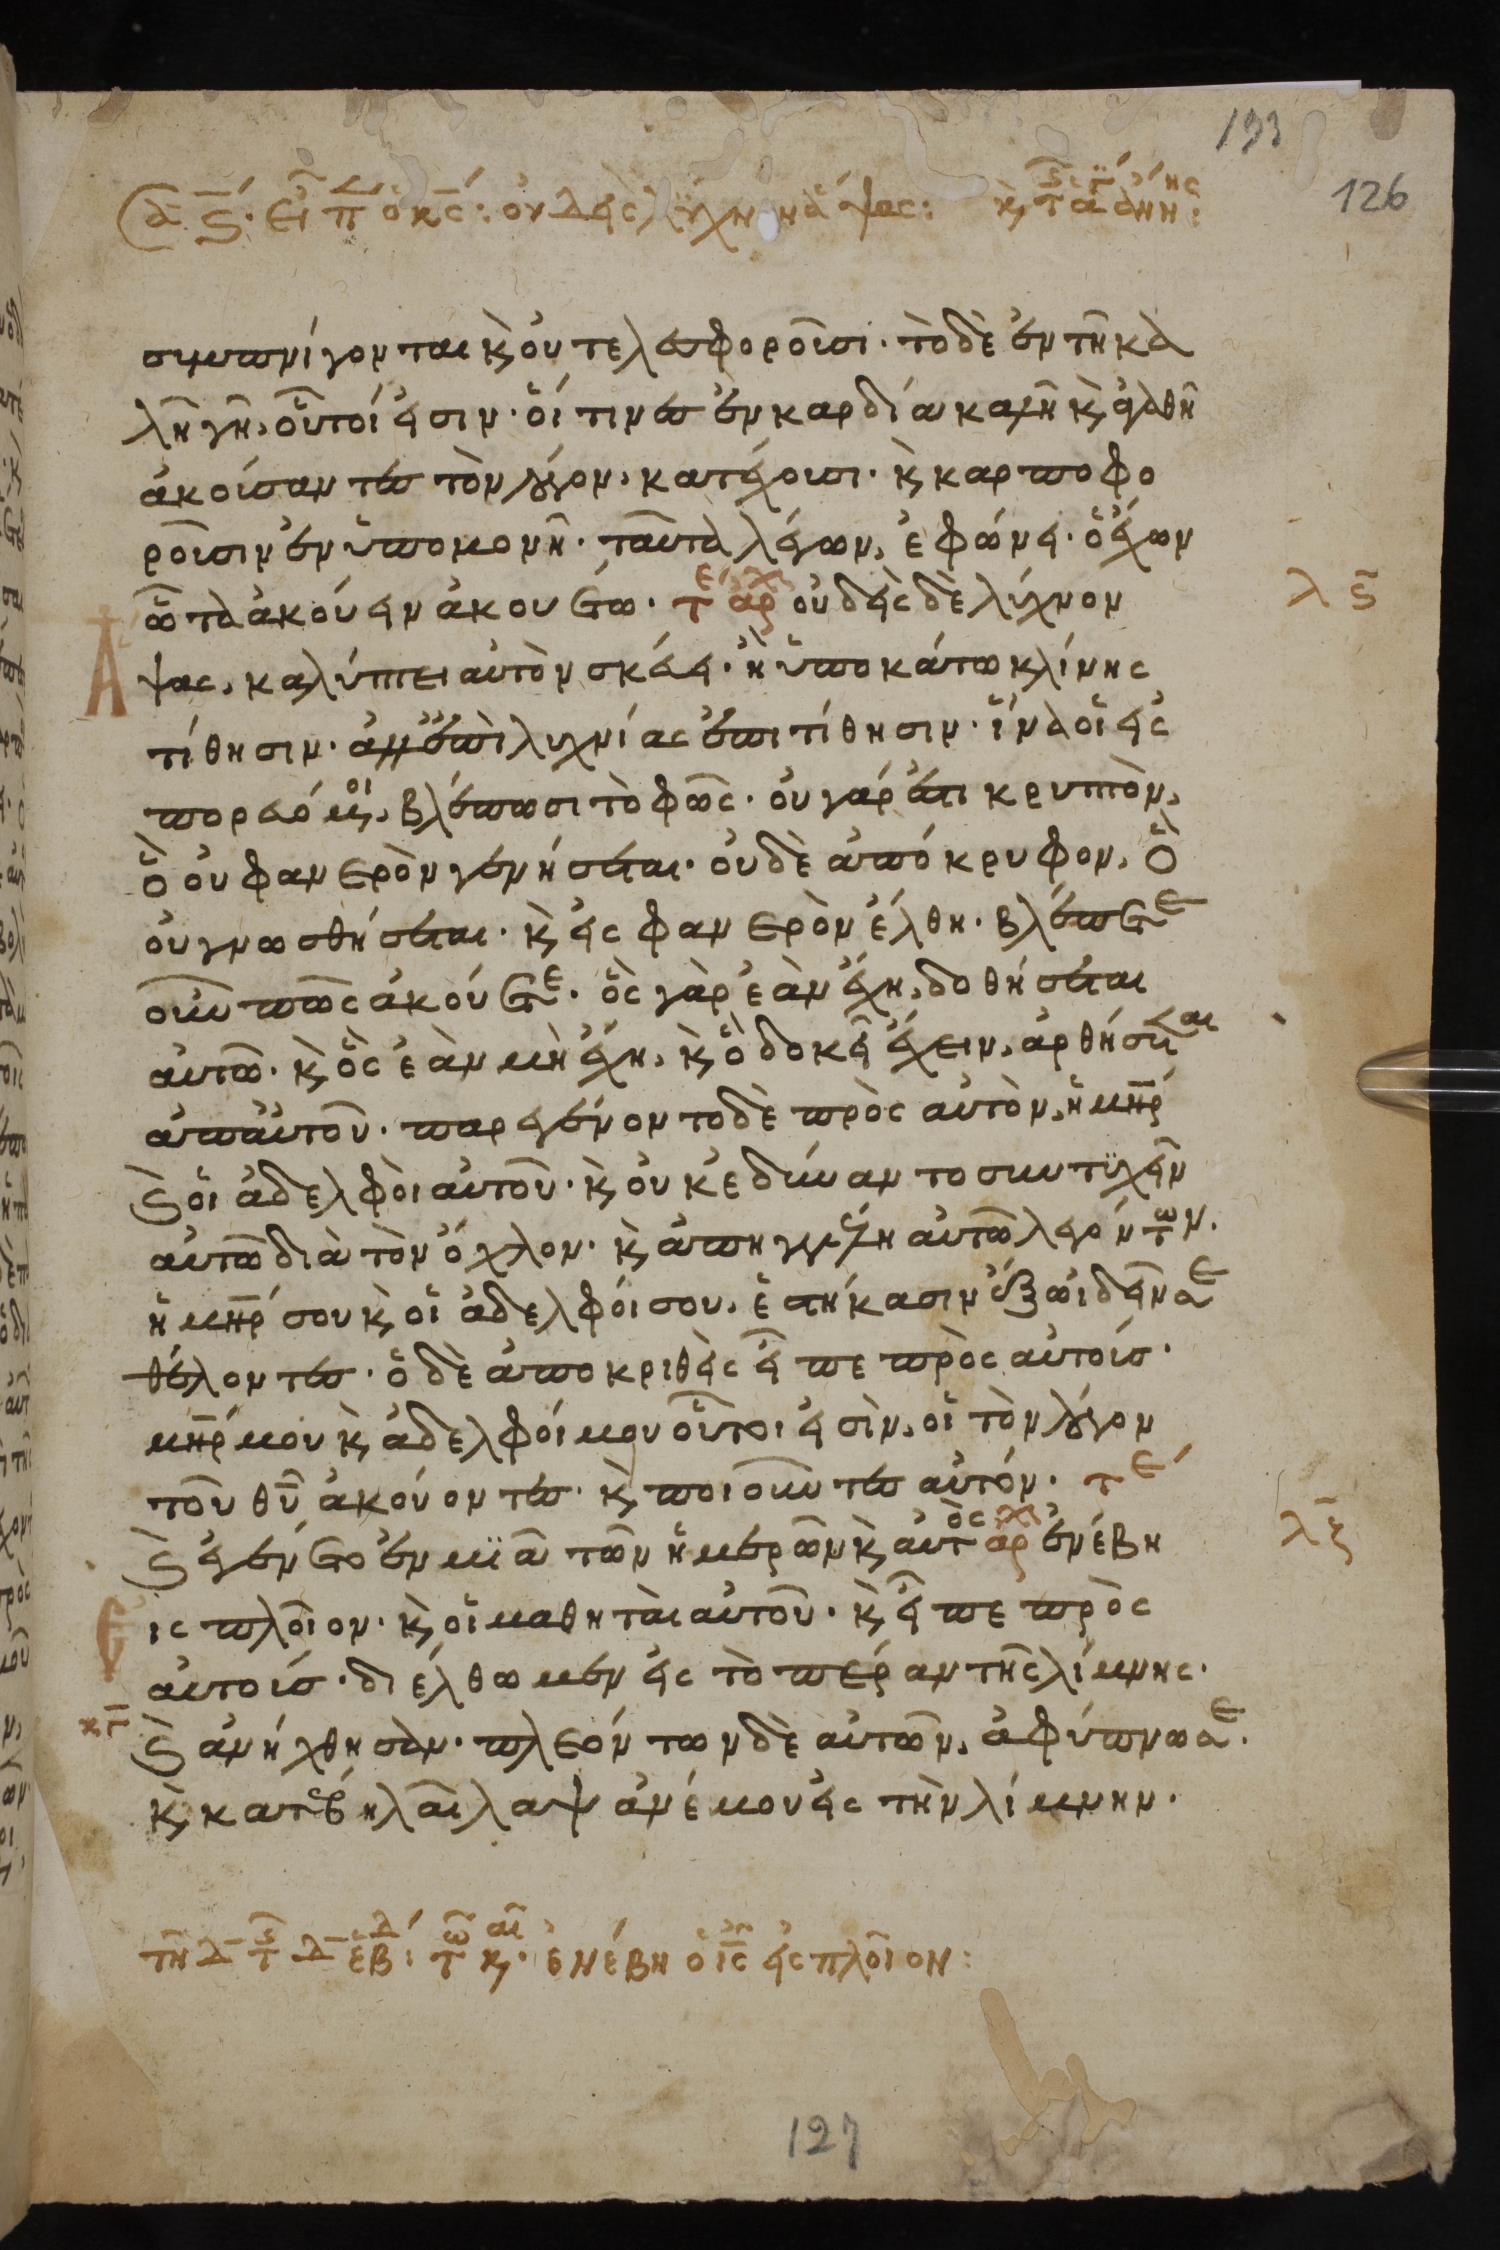 133
126
εἶπ ὁ κς̅: οὐδεὶς λύχνον ἅψας:
συμπνίγονται κ, οὐ τελεσφοροῦσι· τὸ δὲ ἐν τῆ κα
λῆ γῆ, οὗτοί εἰσιν· οἵ τινες ἐν καρδία καλῆ κ, ἀγαθῆ
ἀκούσαντες τὸν λόγον, κατέχουσι· κ, καρποφο
ροῦσιν ἐν ὑπομονῆ· ταῦτα λέγων, ἐφώνει· ὁ ἔχων
ὦτα ἀκούειν ἀκουέτω· τε ἀρχ οὐδεὶς δὲ λύχνον
Α
λς̅
ψας, καλύπτει αὐτὸν σκεύει· ἢ ὑποκάτω κλίνης
τίθησιν· ἀλλ' ἐπὶ λυχνίας ἐπιτίθησιν· ἵνα οἱ εἰσ
πορευόμενοι, βλέπωσι τὸ φῶς· οὐ γάρ ἐστι κρυπτὸν,
ὃ οὐ φανερὸν γενήσεται· οὐδὲ ἀπόκρυφον, ὃ
οὐ γνωσθήσεται· κ, εἰς φανερὸν ἔλθη· βλέπετε
οὖν πῶς ἀκούετε· ὃς γὰρ ἐὰν ἔχη, δοθήσεται
αὐτῶ· κ, ὃς ἐὰν μὴ ἔχη, κ, ὃ δοκεῖ ἔχειν, ἀρθήσεται
ἀπ' αὐτοῦ· παρεγένοντο δὲ πρὸς αὐτὸν, ἡ μη̅ρ
κ, οἱ ἀδελφοὶ αὐτοῦ· κ, οὐκ ἐδύναντο συντυχεῖν
αὐτῶ διὰ τὸν ὄχλον· κ, ἀπηγγέλη αὐτῶ λεγόντων·
ἡ μη̅ρ σου κ, οἱ ἀδελφοί σου, ἑστήκασιν ἔξω ἰδεῖν σε
θέλοντες· ὁ δὲ ἀποκριθεὶς εἶπε πρὸς αὐτούς·
μη̅ρ μου κ, ἀδελφοί μου οὗτοι εἰσὶν, οἱ τὸν λόγον
τοῦ θυ̅ ἀκούοντες· κ, ποιοῦντες αὐτόν· τε
κ, ἐγένετο ἐν μιᾶ τῶν ἡμερῶν κ, αὐτὸς ἀρχ ἐνέβη
λζ̅
Ε
ις πλοῖον· κ, οἱ μαθηταὶ αὐτοῦ· κ, εἶπε πρὸς
αὐτούς· διέλθωμεν εἰς τὸ πέραν τῆς λίμνης·
κ, ἀνήχθησαν· πλεόντων δὲ αὐτῶν, ἀφύπνωσε·
κ, κατέβη λαῖλαψ ἀνέμου εἰς τὴν λίμνην·
τῆ Δ τ Δ ἑβ: τ κ,· ἐνέβη ὁ ις̅ εἰς πλοῖον:
127